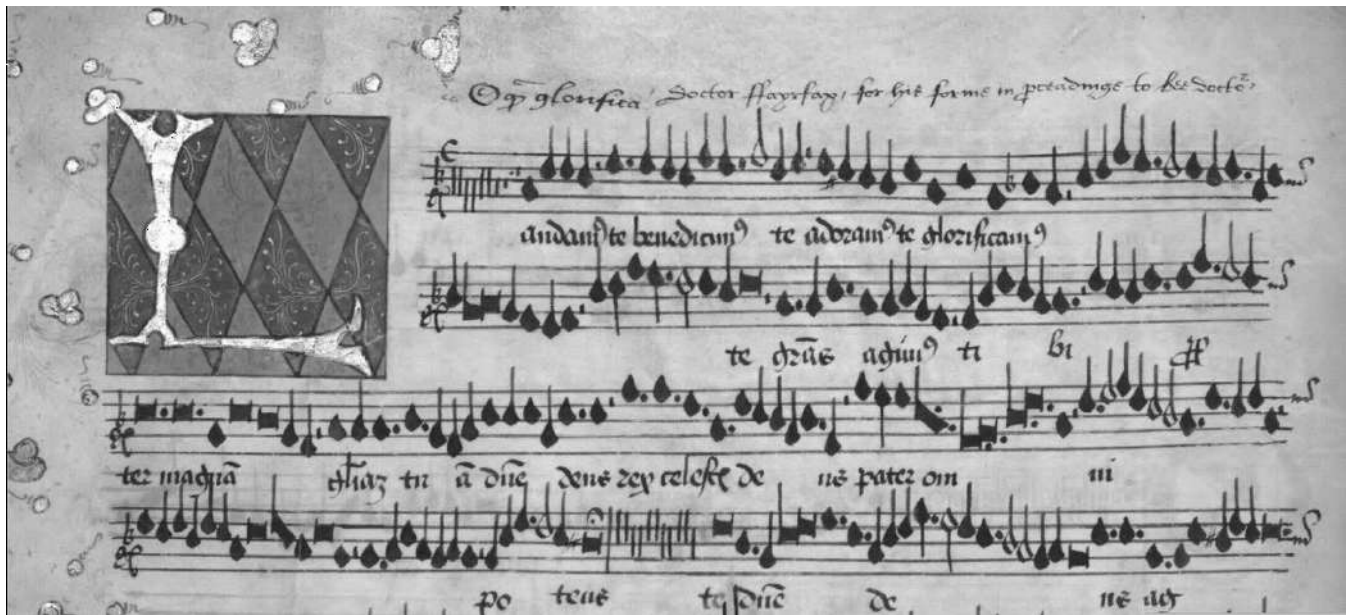 O qͫ glorifica / doctor ffayrfax / for his forme in proceadinge to bee doctoͬ
L audamꝰ te benedicimꝰ te adoramꝰ te glorificamꝰ
te grās agimꝰ ti bi ꝓpt
ter magnā gl̄iaꝫ tu ā dn̄e deus rex celestꝭ de us pater om ni
po tens te dn̄e de us ag